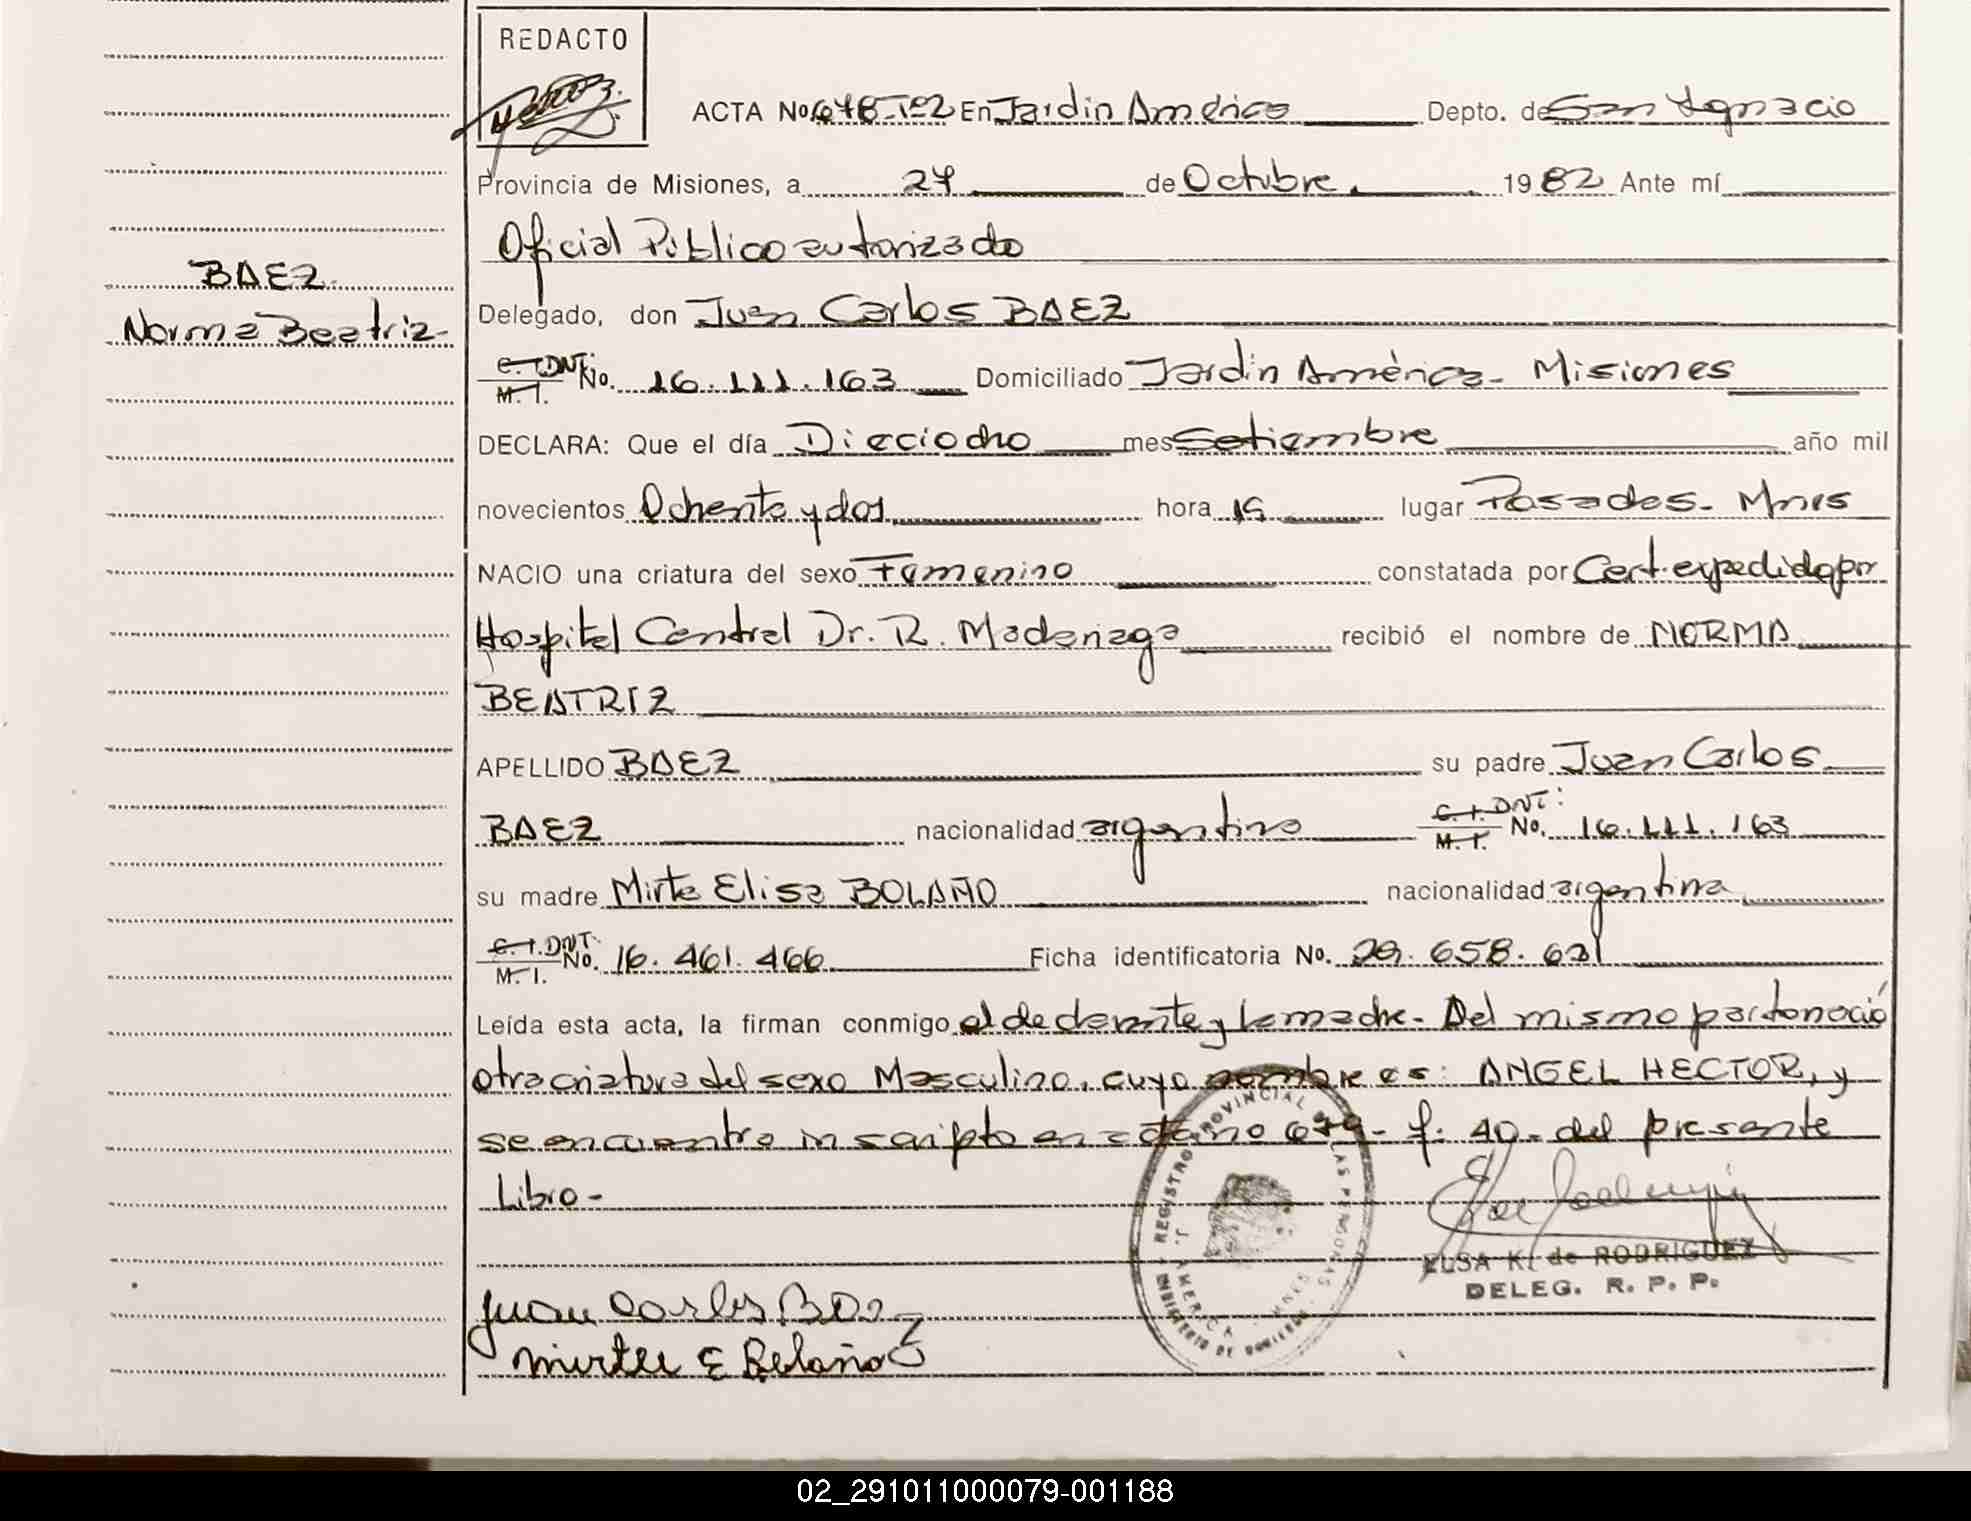 REDACTO
ACTA No. 678-Tº2 En Jardin América Depto. de San Ignacio
Provincia de Misiones, a 27 de Octubre 1982 Ante mí
Oficial Público autorizado
BAEZ
Norma Beatriz-
Delegado, don Juan Carlos BAEZ
C. I. DNI: M. I. No. 16.111.163 Domiciliado Jardin América- Misiones
DECLARA: Que el día Dieciocho mes Setiembre año mil
novecientos Ochenta y dos hora lugar Posadas- Mnes
NACIO una criatura del sexo Femenino constatada por Cert. expedido por
Hospital Central Dr. R. Madariaga recibió el nombre de NORMA
BEATRIZ
APELLIDO BAEZ su padre Juan Carlos
BAEZ nacionalidad argentina C. I. DNI: M. I. No. 16.111.163
su madre Mirta Elisa BOLAÑO nacionalidad argentina
C. I. DNI: M. I. No. 16.461.466 Ficha identificatoria No. 29.658.631
Leída esta acta, la firman conmigo el declarante y la madre- Del mismo parto nació
otra criatura del sexo Masculino, cuyo nombre es: ANGEL HECTOR, y
se encuentra inscripto en acta no 679- f. 40- del presente
Libro-
REGISTRO PROVINCIAL DE LAS PERSONAS
MINISTERIO DE GOBIERNO
J. AMERICA MNES
ELSA K. de RODRIGUEZ
DELEG. R. P. P.
Juan Carlos Baez
Mirta E Bolaño
02_291011000079-001188